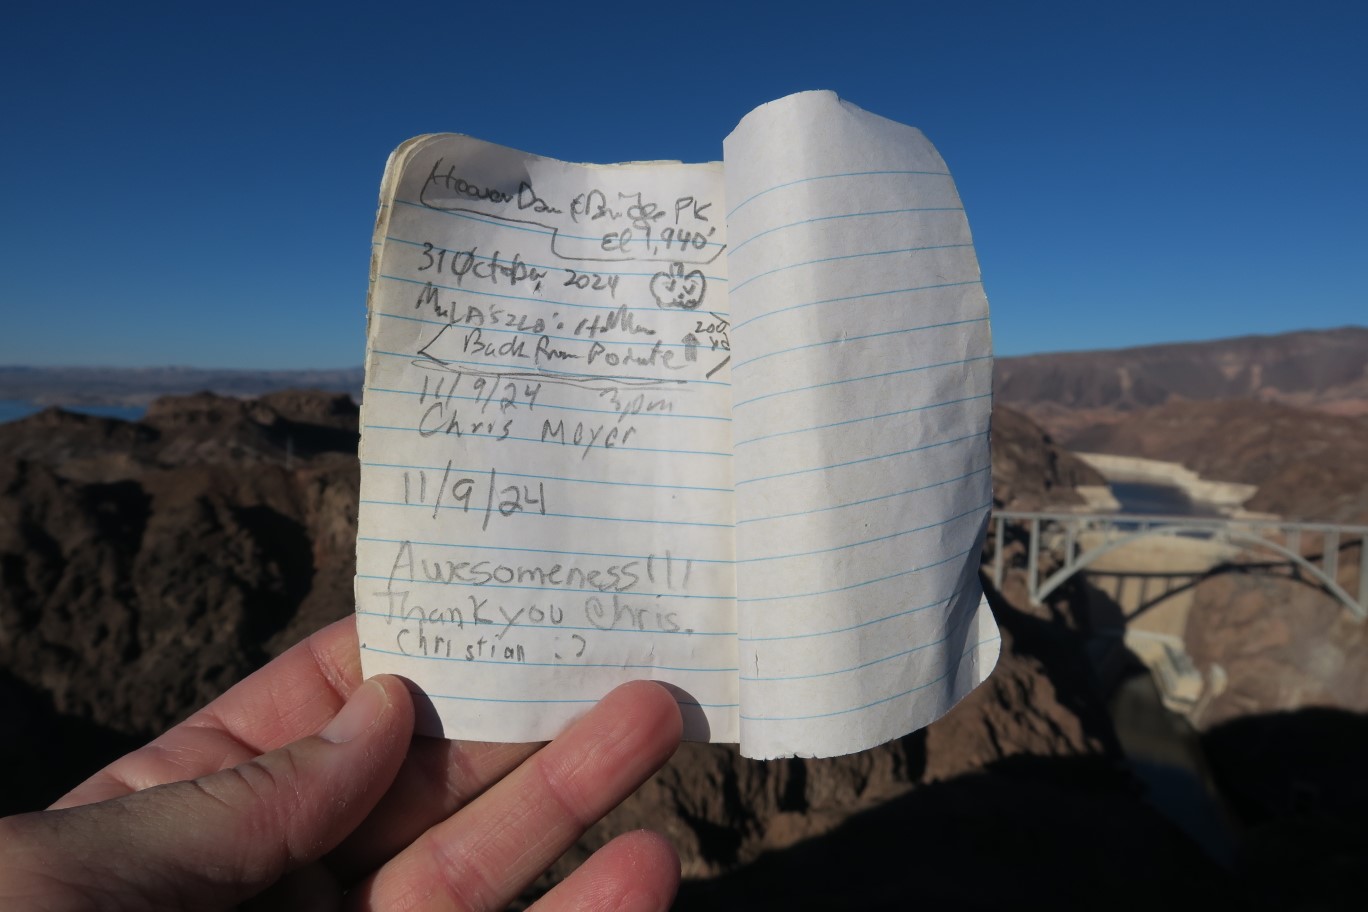 Hoover Dam & Bridge PK
El 1,940'
31 October 2024
200 yd
Back from Pointe
11/9/24 3pm
Chris Meyer
11/9/24
Awesomeness!!!
Thank you Chris.
Christian :)